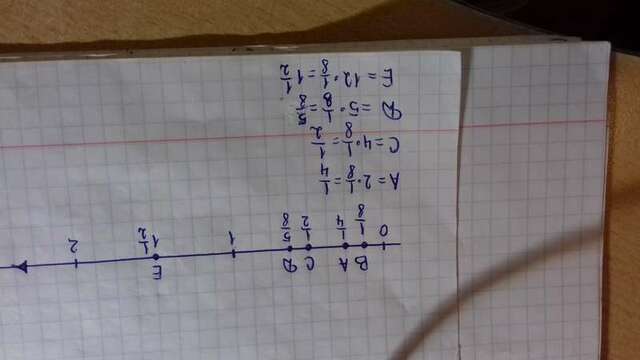 B A C D E
0 1/8 1/4 1/2 5/8 1 1 1/2 2
A = 2 · 1/8 = 1/4
C = 4 · 1/8 = 1/2
D = 5 · 1/8 = 5/8
E = 12 · 1/8 = 1 1/2